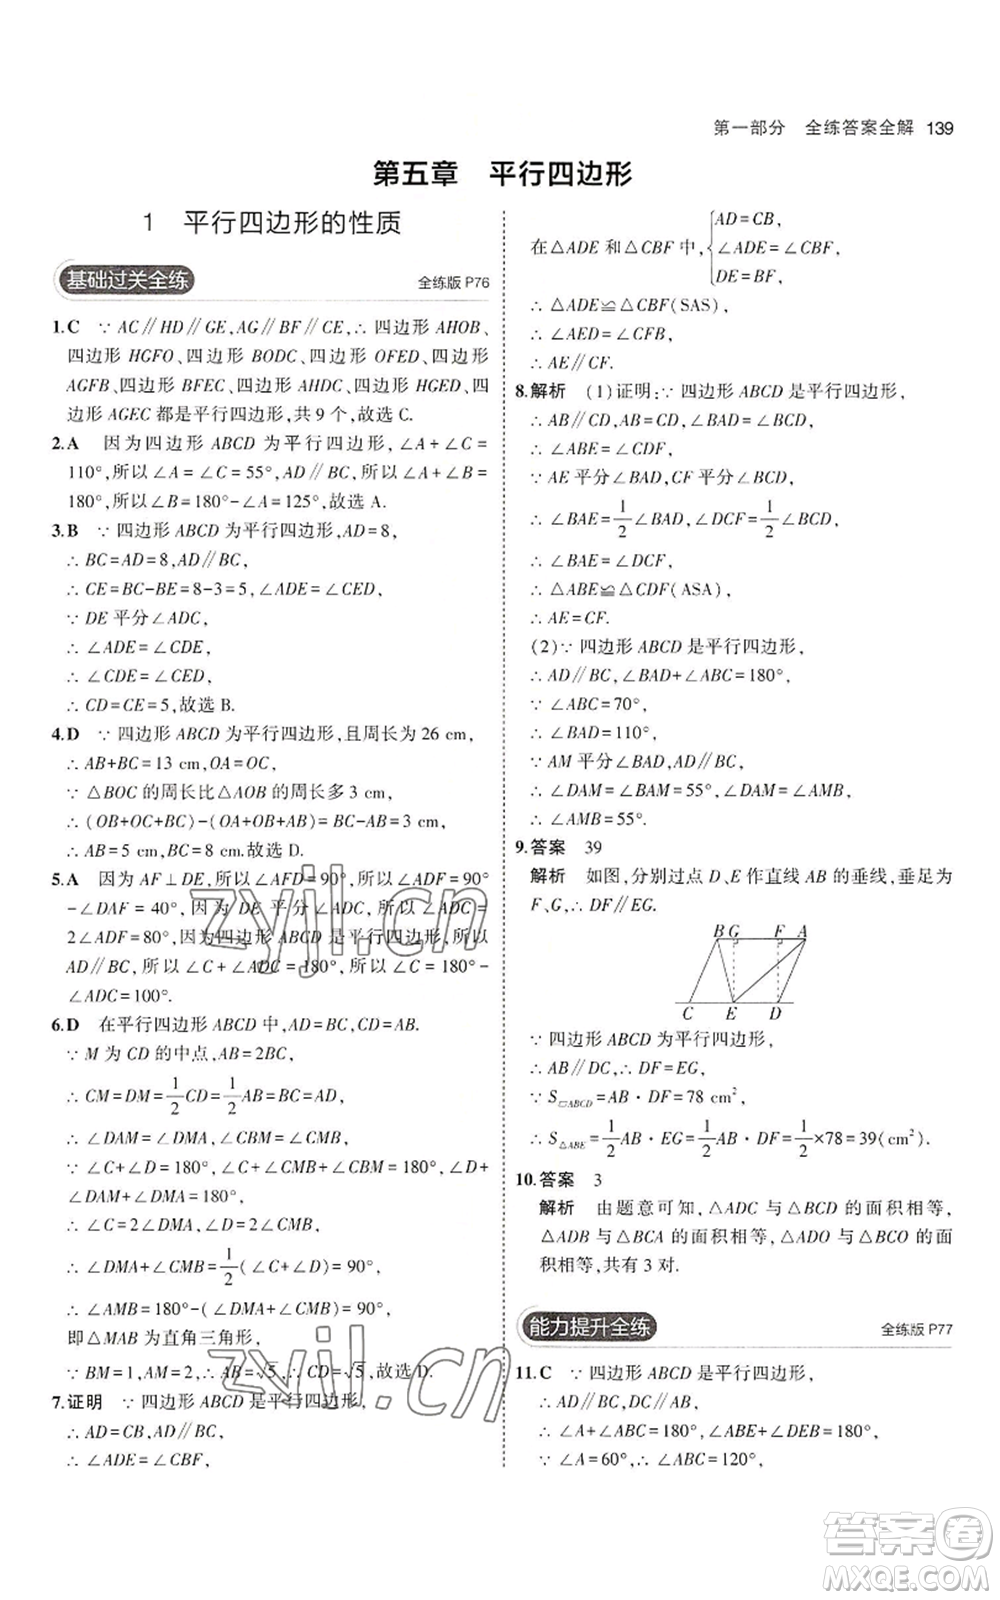 第一部分 全练答案全解 139
第五章 平行四边形
1 平行四边形的性质
基础过关全练 全练版 P76
1.C ∵ AC∥HD∥GE,AG∥BF∥CE,∴ 四边形 AHOB、
四边形 HGFO、四边形 BODC、四边形 OFED、四边形
AGFB、四边形 BFEC、四边形 AHDC、四边形 HGED、四
边形 AGEC 都是平行四边形,共 9 个,故选 C.
2.A 因为四边形 ABCD 为平行四边形,∠A+∠C=
110°,所以∠A=∠C=55°,AD∥BC,所以∠A+∠B=
180°,所以∠B=180°-∠A=125°,故选 A.
3.B ∵ 四边形 ABCD 为平行四边形,AD=8,
∴ BC=AD=8,AD∥BC,
∴ CE=BC-BE=8-3=5,∠ADE=∠CED.
∵ DE 平分∠ADC,
∴ ∠ADE=∠CDE,
∴ ∠CDE=∠CED,
∴ CD=CE=5,故选 B.
4.D ∵ 四边形 ABCD 为平行四边形,且周长为 26 cm,
∴ AB+BC=13 cm,OA=OC,
∵ △BOC 的周长比△AOB 的周长多 3 cm,
∴ (OB+OC+BC)-(OA+OB+AB)=3 cm,
∴ AB=5 cm,BC=8 cm.故选 D.
5.A 因为 AF⊥DE,所以∠AFD=90°,所以∠ADF=90°
-∠DAF=40°,因为 DE 平分∠ADC,所以∠ADC=
2∠ADF=80°,因为四边形 ABCD 是平行四边形,所以
AD∥BC,所以∠C+∠ADC=180°,所以∠C=180°-
∠ADC=100°.
6.D 在平行四边形 ABCD 中,AD=BC,CD=AB.
∵ M 为 CD 的中点,AB=2BC,
∴ CM=DM=1/2CD=1/2AB=BC=AD,
∴ ∠DAM=∠DMA,∠CBM=∠CMB,
∵ ∠C+∠D=180°,∠C+∠CMB+∠CBM=180°,∠D+
∠DAM+∠DMA=180°,
∴ ∠C=2∠DMA,∠D=2∠CMB,
∴ ∠DMA+∠CMB=1/2(∠C+∠D)=90°,
∴ ∠AMB=180°-(∠DMA+∠CMB)=90°,
即△MAB 为直角三角形,
∵ BM=1,AM=2,∴ AB=√5,∴ CD=√5,故选 D.
7.证明 ∵ 四边形 ABCD 是平行四边形,
∴ AD=CB,AD∥BC,
∴ ∠ADE=∠CBF,
在△ADE 和△CBF 中,{AD=CB,
∠ADE=∠CBF,
DE=BF,
∴ △ADE≌△CBF(SAS),
∴ ∠AED=∠CFB,
∴ AE∥CF.
8.解析 (1)证明:∵ 四边形 ABCD 是平行四边形,
∴ AB∥CD,AB=CD,∠BAD=∠BCD,
∴ ∠ABE=∠CDF.
∵ AE 平分∠BAD,CF 平分∠BCD,
∴ ∠BAE=1/2∠BAD,∠DCF=1/2∠BCD,
∴ ∠BAE=∠DCF.
∴ △ABE≌△CDF(ASA),
∴ AE=CF.
(2)∵ 四边形 ABCD 是平行四边形,
∴ AD∥BC,∠BAD+∠ABC=180°,
∵ ∠ABC=70°,
∴ ∠BAD=110°,
∵ AM 平分∠BAD,AD∥BC,
∴ ∠DAM=∠BAM=55°,∠DAM=∠AMB,
∴ ∠AMB=55°.
9.答案 39
解析 如图,分别过点 D、E 作直线 AB 的垂线,垂足为
F、G,∴ DF∥EG.
B G F A
C E D
∵ 四边形 ABCD 为平行四边形,
∴ AB∥DC,∴ DF=EG,
∵ S▱ABCD=AB·DF=78 cm²,
∴ S△ABE=1/2AB·EG=1/2AB·DF=1/2×78=39(cm²).
10.答案 3
解析 由题意可知,△ADC 与△BCD 的面积相等,
△ADB 与△BCA 的面积相等,△ADO 与△BCO 的面
积相等,共有 3 对.
能力提升全练 全练版 P77
11.C ∵ 四边形 ABCD 是平行四边形,
∴ AD∥BC,DC∥AB,
∴ ∠A+∠ABC=180°,∠ABE+∠DEB=180°,
∵ ∠A=60°,∴ ∠ABC=120°,
zyjl.cn
zyjl.cn
答案卷
MXQE.COM